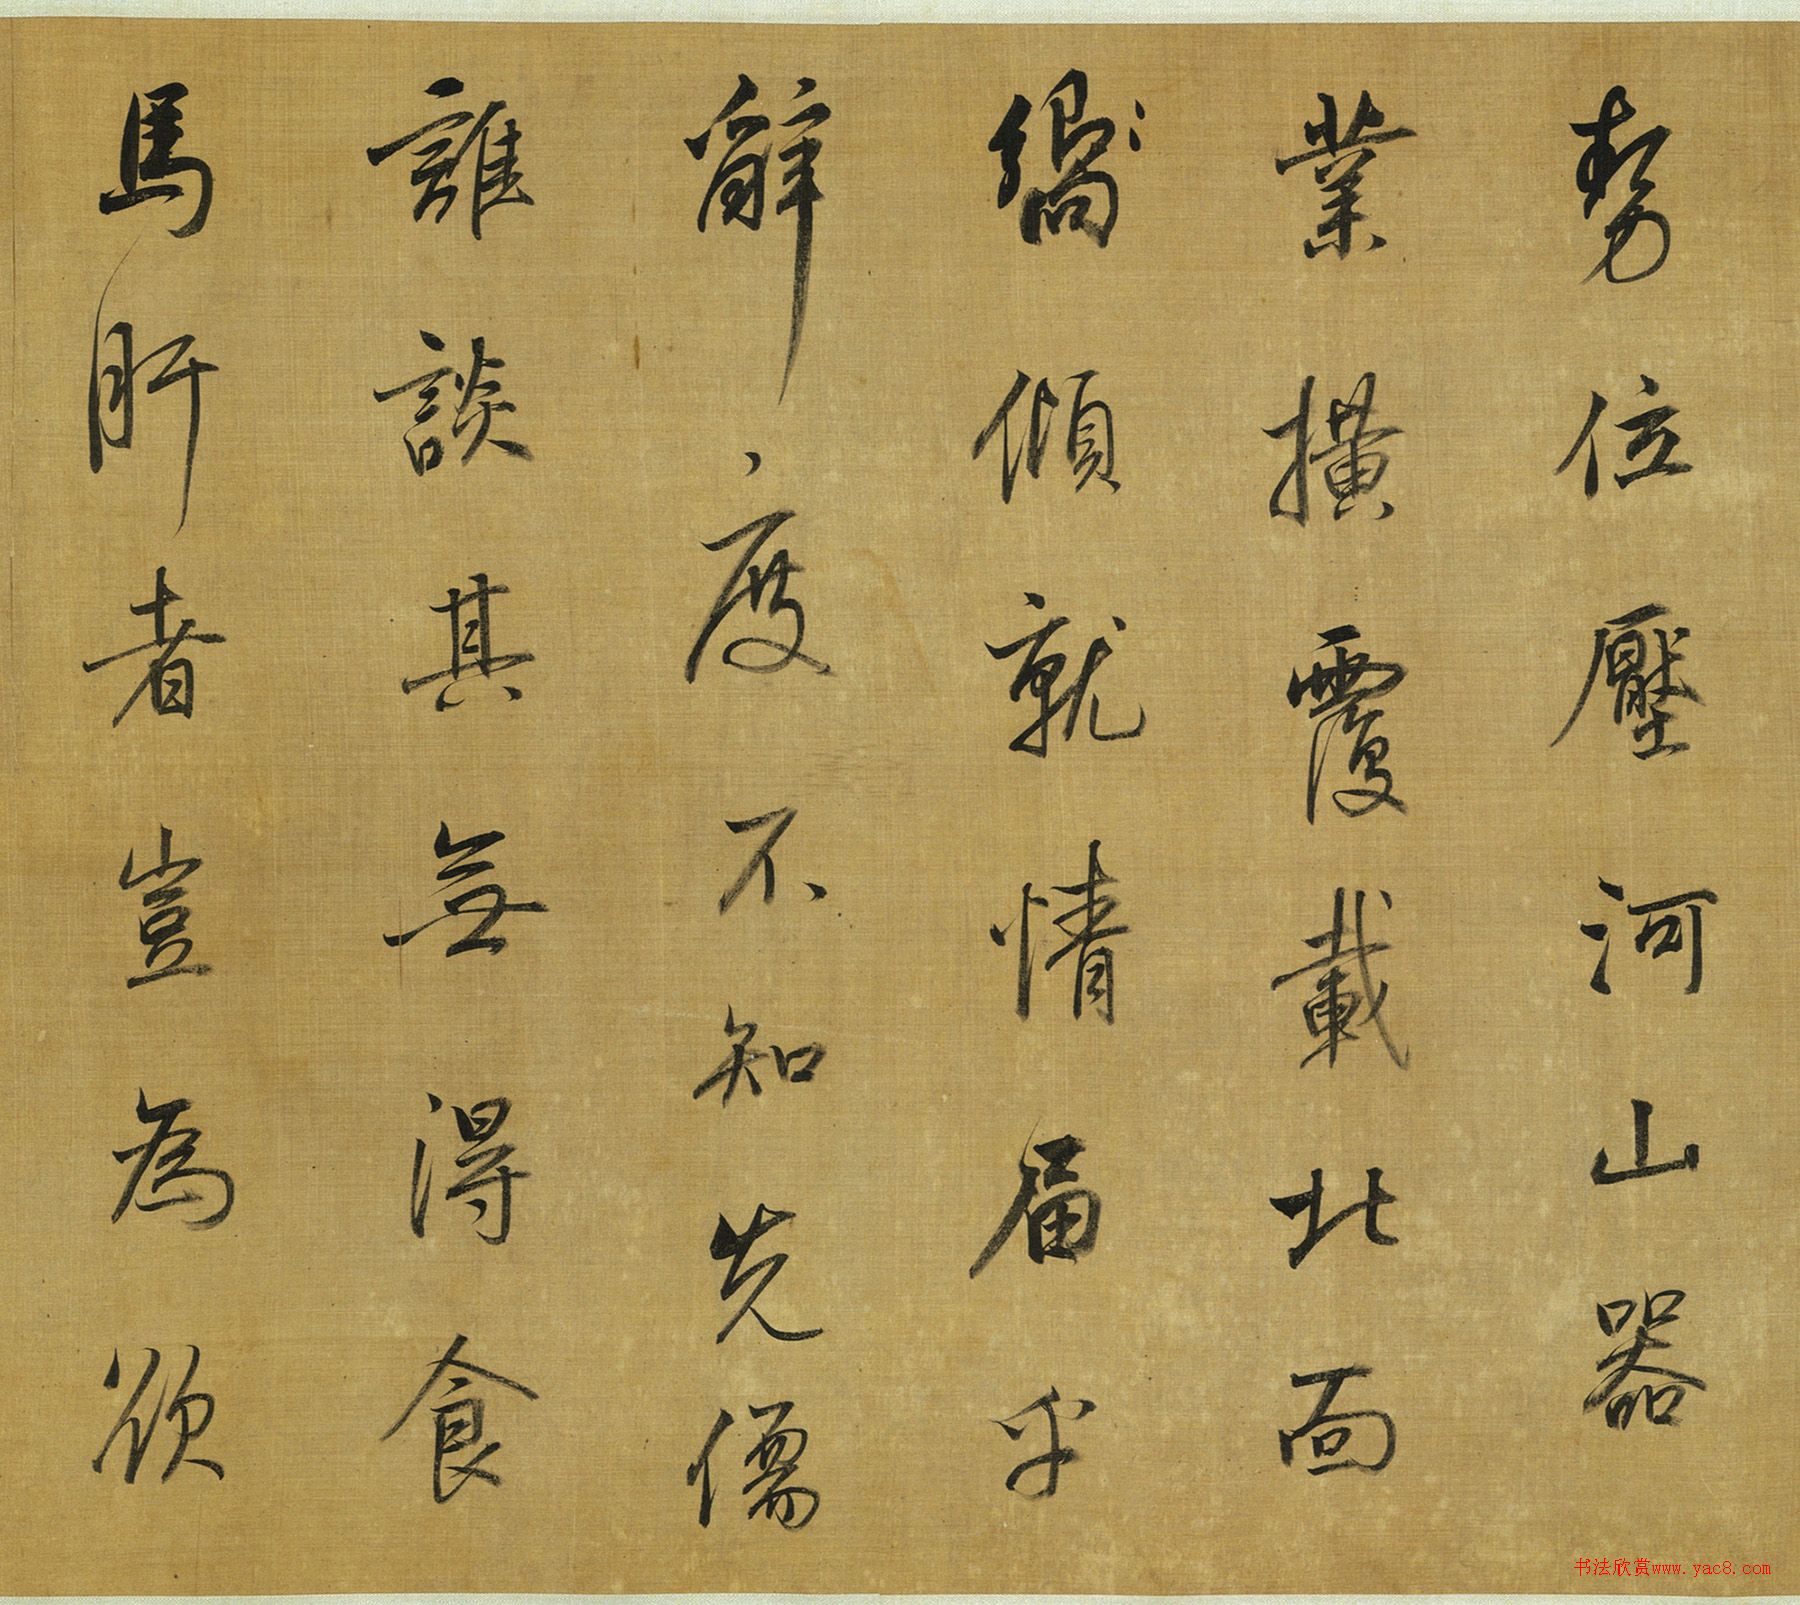 勢位壓河山器
業橫覆載北面
傾就情屆乎
辭、度不知先儒
誰談其無得食
馬肝者豈為欲
书法欣赏www.yac8.com